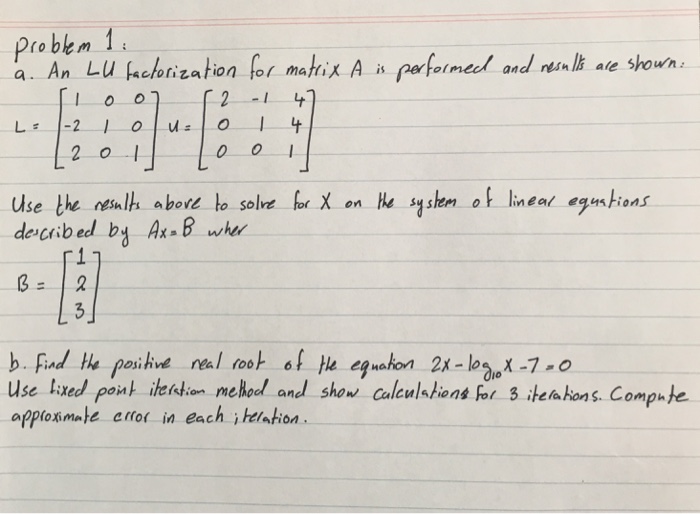 Problem 1:
a. An LU factorization for matrix A is performed and results are shown:
L = [1 0 0; -2 1 0; 2 0 1] U = [2 -1 4; 0 1 4; 0 0 1]
Use the results above to solve for X on the system of linear equations
described by Ax=B wher
B = [1; 2; 3]
b. Find the positive real root of the equation 2x - log₁₀x - 7 = 0
Use fixed point iteration method and show calculations for 3 iterations. Compute
approximate error in each iteration.